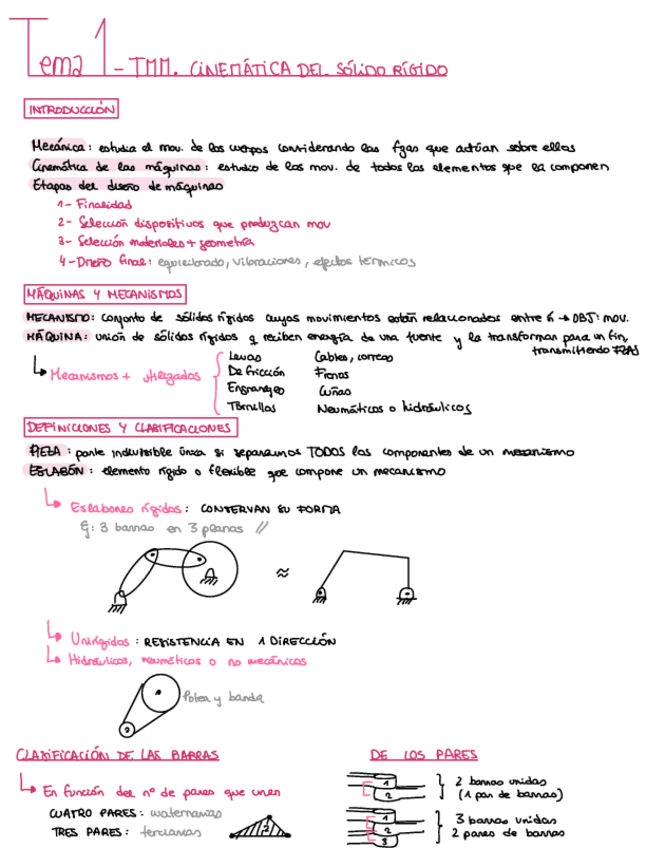 Tema 1 - TMM. CINEMÁTICA DEL SÓLIDO RÍGIDO
INTRODUCCIÓN
Mecánica: estudia el mov. de los cuerpos considerando las fzas que actúan sobre ellos
Cinemática de las máquinas: estudio de los mov. de todos los elementos que la componen
Etapas del diseño de máquinas
1- Finalidad
2- Selección dispositivos que produzcan mov
3- Selección materiales + geometría
4- Diseño final: equilibrado, vibraciones, efectos térmicos
MÁQUINAS Y MECANISMOS
MECANISMO: conjunto de sólidos rígidos cuyos movimientos están relacionados entre sí → OBJ: mov.
MÁQUINA: unión de sólidos rígidos q reciben energía de una fuente y la transforman para un fin,
transmitiendo FZAS
Mecanismos + utilizados
Levas Cables, correas
De fricción Frenos
Engranajes Cuñas
Tornillos Neumáticos o hidráulicos
DEFINICIONES Y CLASIFICACIONES
PIEZA: parte indivisible única si separamos TODOS los componentes de un mecanismo
ESLABÓN: elemento rígido o flexible que compone un mecanismo
Eslabones rígidos: CONSERVAN SU FORMA
Ej: 3 barras en 3 planos //
≈
Unirígidos: RESISTENCIA EN 1 DIRECCIÓN
Hidráulicos, neumáticos o no mecánicos
Polea y banda
CLASIFICACIÓN DE LAS BARRAS
En función del nº de pares que unen
CUATRO PARES: cuaternarias
TRES PARES: terciarias
DE LOS PARES
1
2
2 barras unidas
(1 par de barras)
1
2
3
3 barras unidas
2 pares de barras